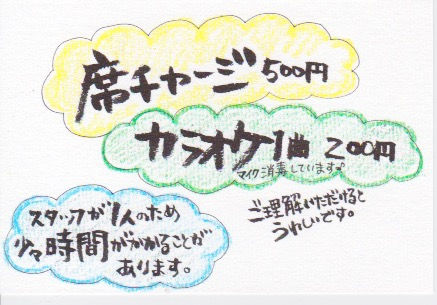 席チャージ500円
カラオケ1曲 200円
マイク消毒しています。
スタッフが1人のため
少々時間がかかることが
あります。
ご理解いただけると
うれしいです。